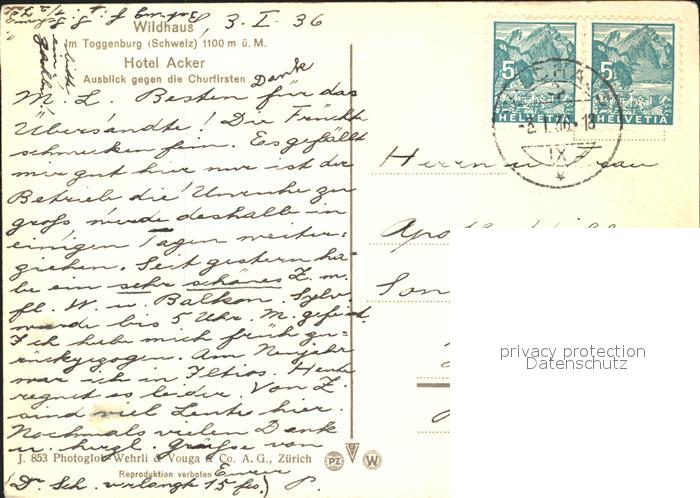 3. I. 36
Wildhaus
im Toggenburg (Schweiz) 1100 m ü. M.
Hotel Acker
Ausblick gegen die Churfirsten
Dank
M. L. Besten für das
Übersandte! Die Früchte
schmecken fein. Es gefällt
mir gut hier nur ist der
Betrieb die Unruhe zu
groß werde deshalb in
einigen Tagen weiter:
ziehen. Seit gestern ha-
be ein sehr schönes Z. m.
fl. W. u. Balkon. Sylv.
wurde bis 5 Uhr. M. gefeiert.
Ich habe mich früh zu-
rückgezogen. Am Neujahr
war ich in Iltios. Heute
regnet es leider. Von Z
sind viel Leute hier.
Nochmals vielen Dank
u. herzl. Grüsse von
J. 853 Photoglob-Wehrli & Vouga & Co. A. G., Zürich
Reproduktion verboten
Eurer
(Dr. Sch. verlangte 15 frs.) P.
PZ
V
W
5
HELVETIA
5
HELVETIA
IX
Herrn u. Frau
privacy protection
Datenschutz